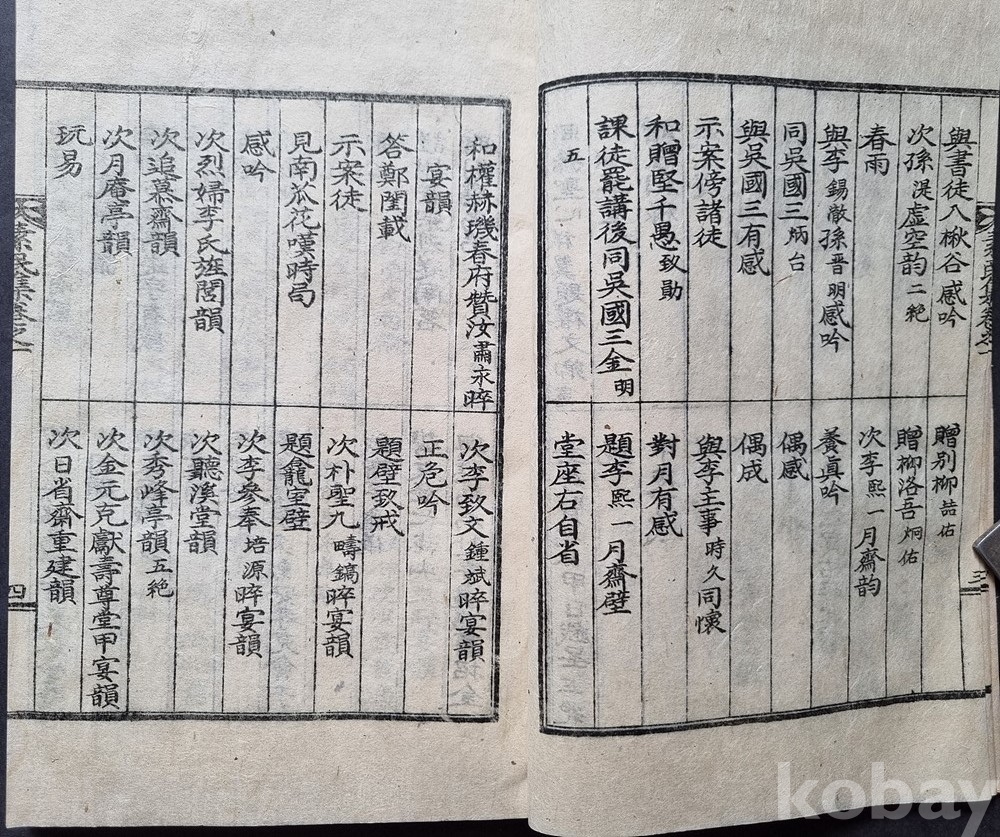 與書徒入楸谷感吟
次孫湜虛空韵二絶
春雨
與李錫敞孫晋明感吟
同吳國三炳台
與吳國三有感
示案傍諸徒
和贈堅千愚致勛
課徒罷講後同吳國三金明
五
贈別柳喆佑
贈柳洛吾炯佑
次李熙一月齋韵
養眞吟
偶感
偶成
與李主事時久同懷
對月有感
題李熙一月齋壁
堂座右自省
三
和權赫璣春府贊汝肅永晬
宴韻
答鄭閏載
示案徒
見南瓜花嘆時局
感吟
次烈婦李氏旌閭韻
次追慕齋韻
次月庵亭韻
玩易
次李致文鍾斌晬宴韻
正危吟
題壁玆戒
次朴聖九疇鎬晬宴韻
題龕室壁
次李參奉培源晬宴韻
次聽溪堂韻
次秀峰亭韻五絶
次金元克獻壽尊堂甲宴韻
次日省齋重建韻
集卷之一
四
kobay